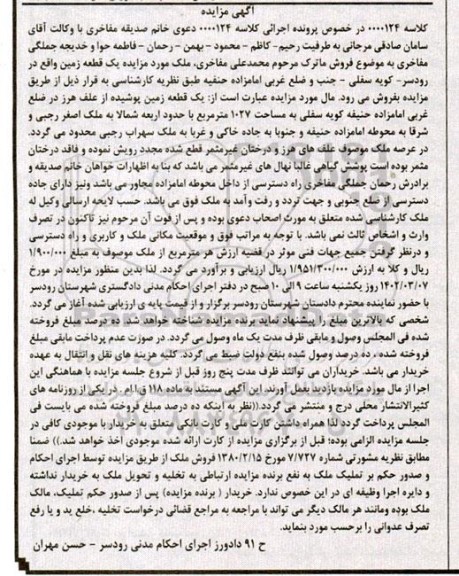 آگهی مزایده
کلاسه ۰۰۰۰۱۲۴ در خصوص پرونده اجرائی کلاسه ۰۰۰۰۱۲۴ دعوی خانم صدیقه مفاخری با وکالت آقای
سامان صادقی مرجانی به طرفیت رحیم- کاظم - محمود - بهمن - رحمان - فاطمه حوا و خدیجه جملگی
مفاخری به موضوع فروش ماترک مرحوم محمدعلی مفاخری، ملک مورد مزایده یک قطعه زمین واقع در
رودسر- کویه سفلی - جنب و ضلع غربی امامزاده حنفیه طبق نظریه کارشناسی به قرار ذیل از طریق
مزایده بفروش می رود. مال مورد مزایده عبارت است از: یک قطعه زمین پوشیده از علف هرز در ضلع
غربی امامزاده حنیفه کویه سفلی به مساحت ۱۰۲۷ مترمربع با حدود اربعه شمالا به ملک اصغر رجبی و
شرقا به محوطه امامزاده حنیفه و جنوبا به جاده خاکی و غربا به ملک سهراب رجبی محدود می گردد.
در عرصه ملک موصوف علف های هرز و درختان غیرمثمر قطع شده مجدد رویش نموده و فاقد درختان
مثمر بوده است پوشش گیاهی غالبا نهال های غیرمثمر می باشد که بنا به اظهارات خواهان خانم صدیقه و
برادرش رحمان جملگی مفاخری راه دسترسی از داخل محوطه امامزاده مجاور می باشد ونیز دارای جاده
دسترسی از ضلع جنوبی و جهت تردد و رفت وآمد به ملک فوق می باشد. حسب لایحه ارسالی وکیل له
ملک کارشناسی شده متعلق به مورث اصحاب دعوی بوده و پس از فوت آن مرحوم نیز تاکنون در تصرف
وارث و اشخاص ثالث نمی باشد. با توجه به مراتب فوق و موقعیت مکانی ملک و کاربری و راه دسترسی
و درنظر گرفتن جمیع جهات فنی موثر در قضیه ارزش هر مترمربع از ملک موصوف به مبلغ ۱/۹۰۰/۰۰۰
ریال و کلا به ارزش ۱/۹۵۱/۳۰۰/۰۰۰ ریال ارزیابی و برآورد می گردد. لذا بدین منظور مزایده در مورخ
۱۴۰۲/۰۳/۰۷ روز یکشنبه ساعت ۹ الی ۱۰ صبح در دفتر اجرای احکام مدنی دادگستری شهرستان رودسر
با حضور نماینده محترم دادستان شهرستان رودسر برگزار و از قیمت پایه ی ارزیابی شده آغاز می گردد.
شخصی که بالاترین مبلغ را پیشنهاد نماید برنده مزایده شناخته خواهد شد. ده درصد مبلغ فروخته
شده فی المجلس وصول و مابقی ظرف مدت یک ماه وصول می گردد. در صورت عدم پرداخت مابقی مبلغ
فروخته شده، ده درصد وصول شده بنفع دولت ضبط می گردد. کلیه هزینه های نقل و انتقال به عهده
خریدار می باشد. خریداران می توانند ظرف مدت پنج روز قبل از شروع جلسه مزایده با هماهنگی این
اجرا از مال مورد مزایده بازدید بعمل آورند. این آگهی مستند به ماده ۱۱۸ ق.ا.م . در یکی از روزنامه های
کثیرالانتشار محلی درج و منتشر می گردد.((نظر به اینکه ده درصد مبلغ فروخته شده می بایست فی
المجلس پرداخت گردد لذا همراه داشتن کارت ملی و کارت بانکی متعلق به خریدار با موجودی کافی در
جلسه مزایده الزامی بوده؛ قبل از برگزاری مزایده از کارت ارائه شده موجودی أخذ خواهد شد.)) ضمنا
مطابق نظریه مشورتی شماره ۷/۷۲۷ مورخ ۱۳۸۰/۲/۱۵ فروش ملک از طریق مزایده توسط اجرای احکام
و صدور حکم بر تملیک ملک به نفع برنده مزایده ارتباطی به تخلیه و تحویل ملک به خریدار نداشته
و دایره اجرا وظیفه ای در این خصوص ندارد. خریدار ( برنده مزایده) پس از صدور حکم تملیک، مالک
ملک بوده ومانند هر مالک دیگر می تواند با مراجعه به مراجع قضائی درخواست تخلیه ،خلع ید و یا رفع
تصرف عدوانی را برحسب مورد بنماید.
ح ۹۱ دادورز اجرای احکام مدنی رودسر - حسن مهران